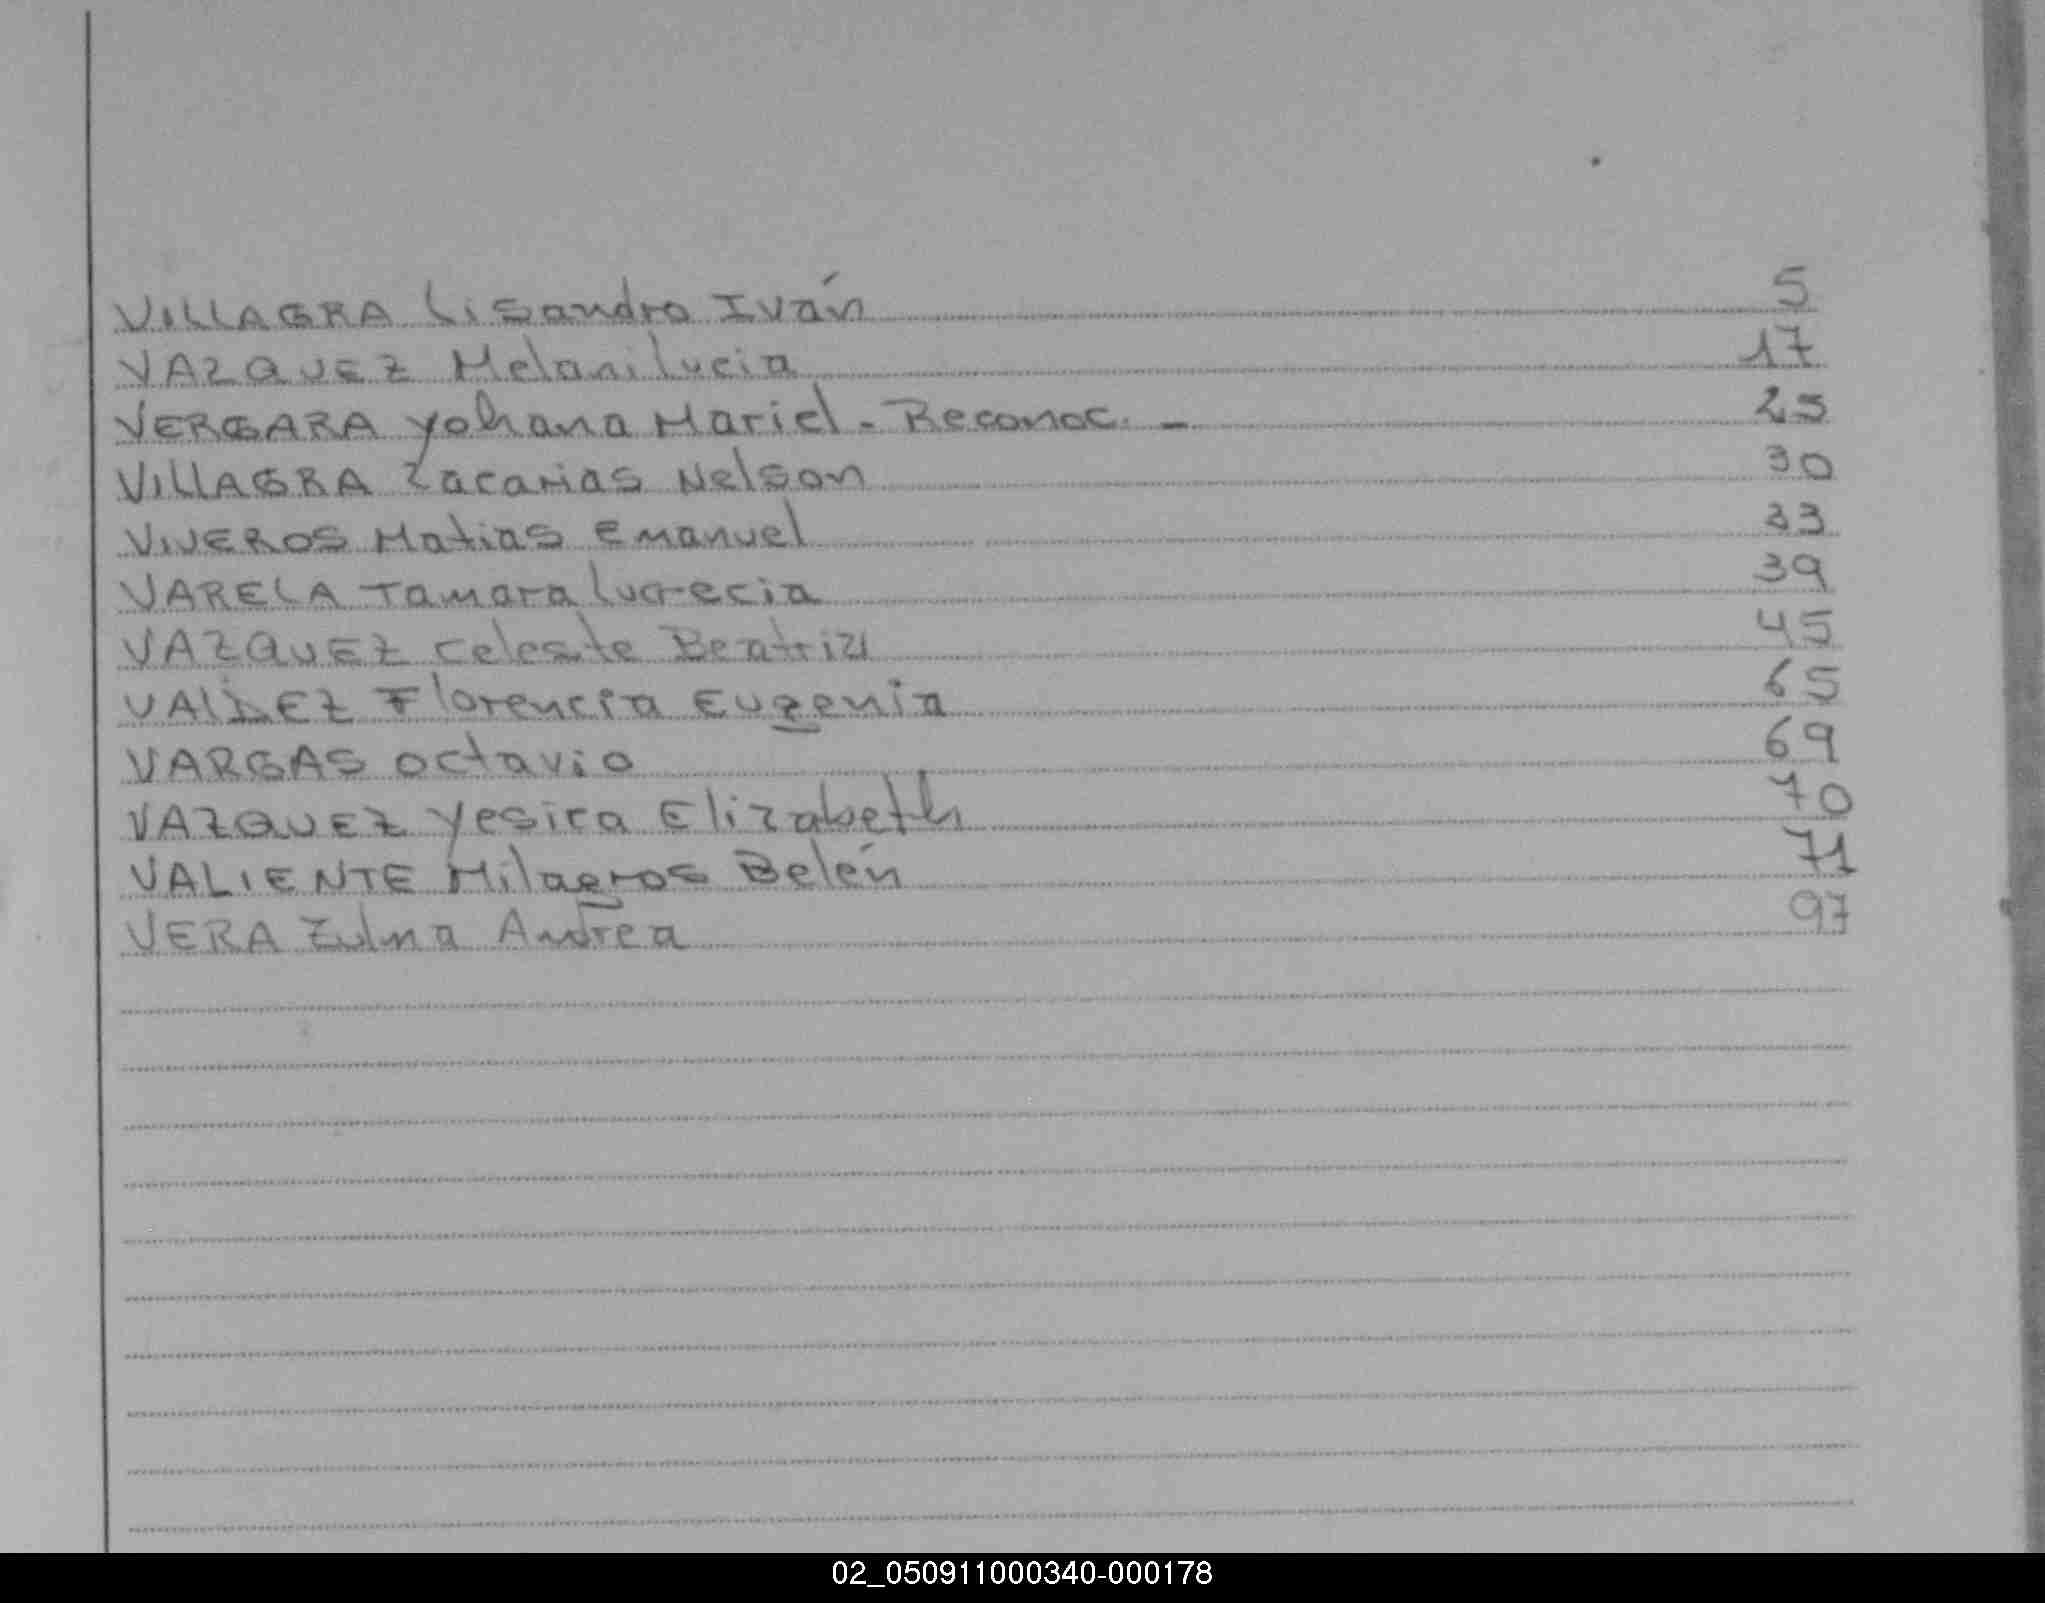 VILLAGRA Lisandro Iván 5
VAZQUEZ Melani lucia 17
VERGARA Yohana Mariel - Reconoc. - 25
VILLAGRA Zacarias Nelson 30
VIVEROS Matias Emanuel 33
VARELA Tamara Lucrecia 39
VAZQUEZ Celeste Beatriz 45
VALDEZ Florencia Eugenia 65
VARGAS Octavio 69
VAZQUEZ Yesica Elizabeth 70
VALIENTE Milagros Belén 71
VERA Zulma Andrea 97
02_050911000340-000178